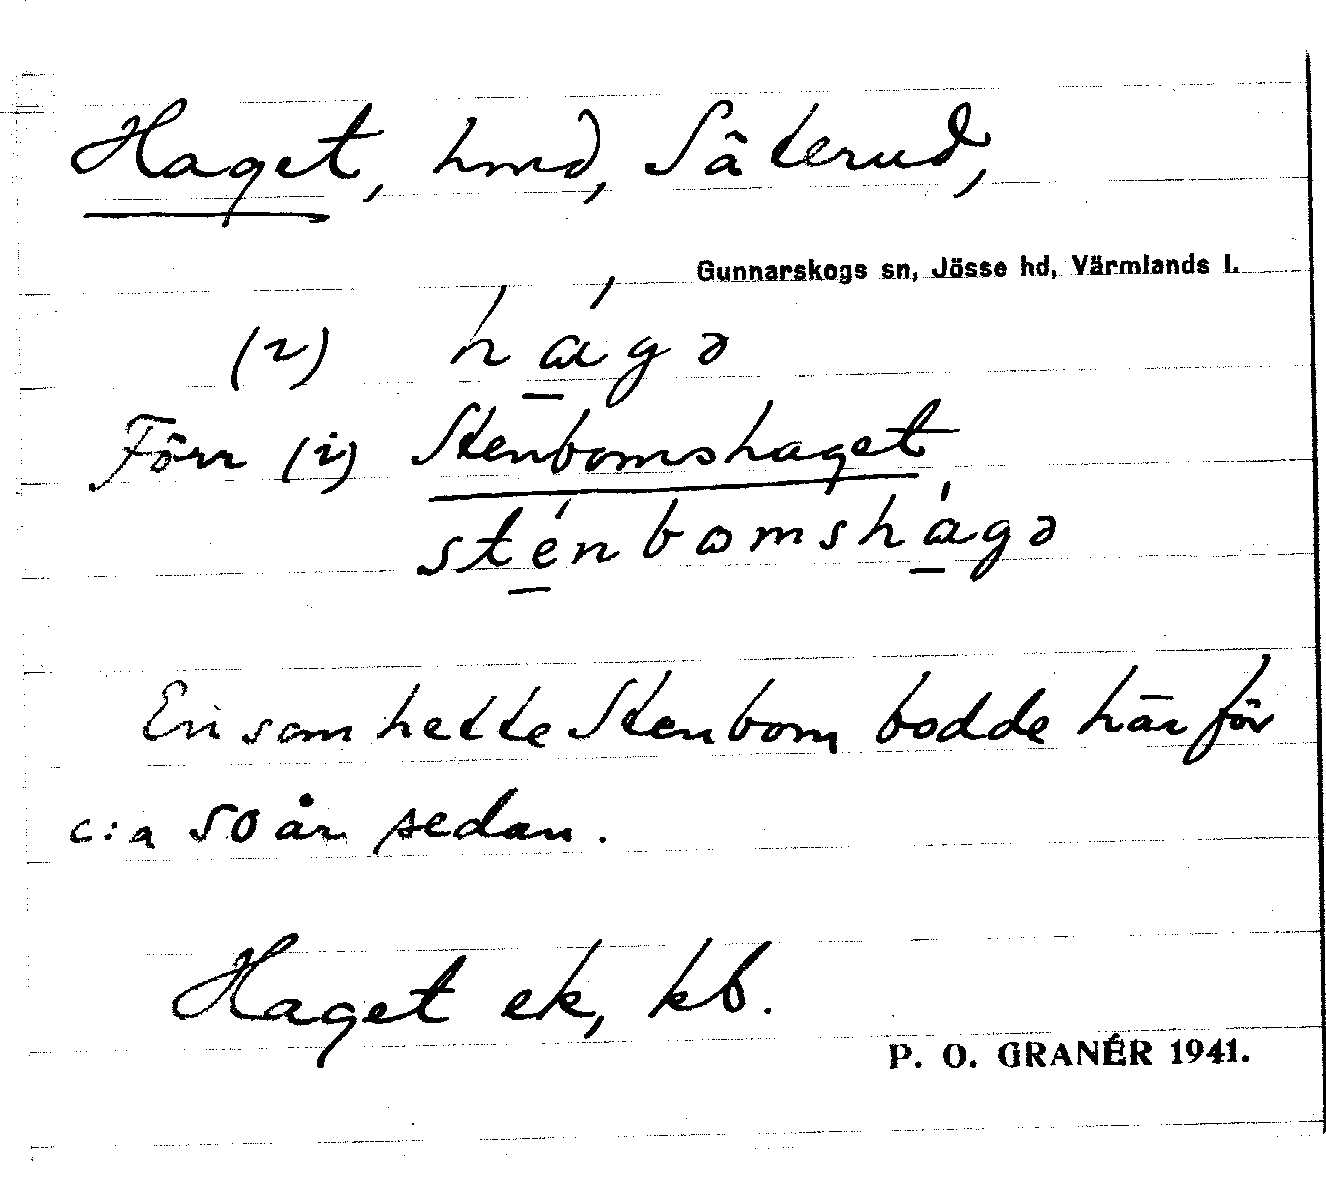 Haget, hmd, Säterud,
Gunnarskogs sn, Jösse hd, Värmlands l.
(i) hágə
Förr (i) Stenbomshaget
sténbomshágə
En som hette Stenbom bodde här för
c:a 50 år sedan.
Haget ek, kb.
P. O. GRANÉR 1941.